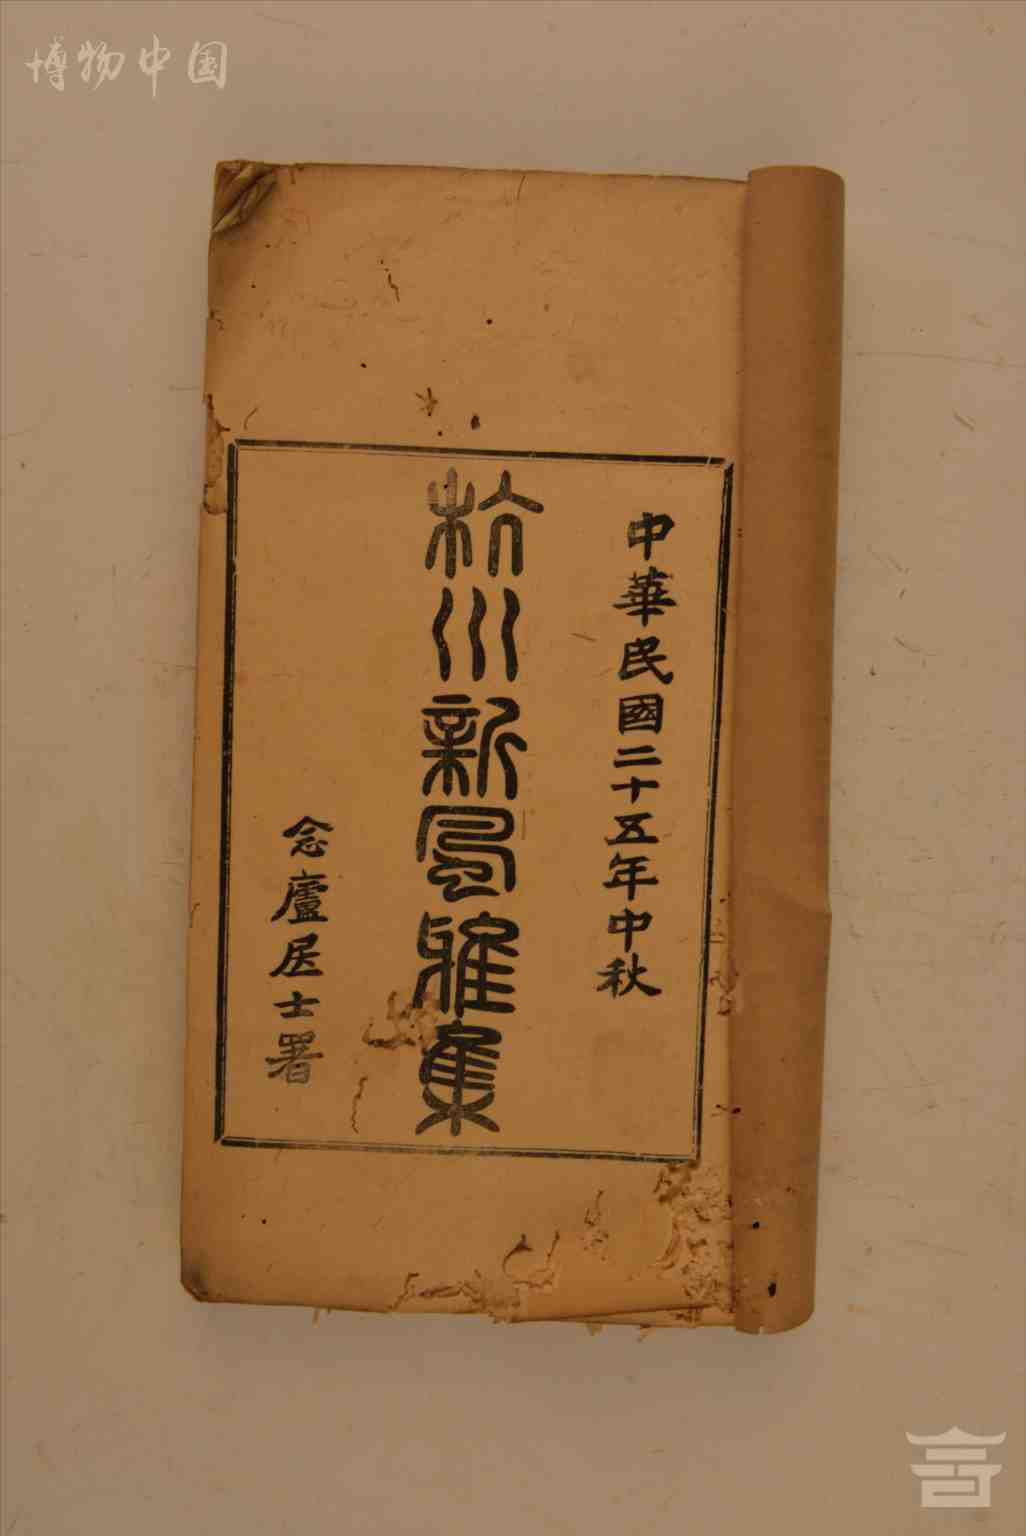 博物中国
中華民國二十五年中秋
杭川新風雅集
念廬居士署